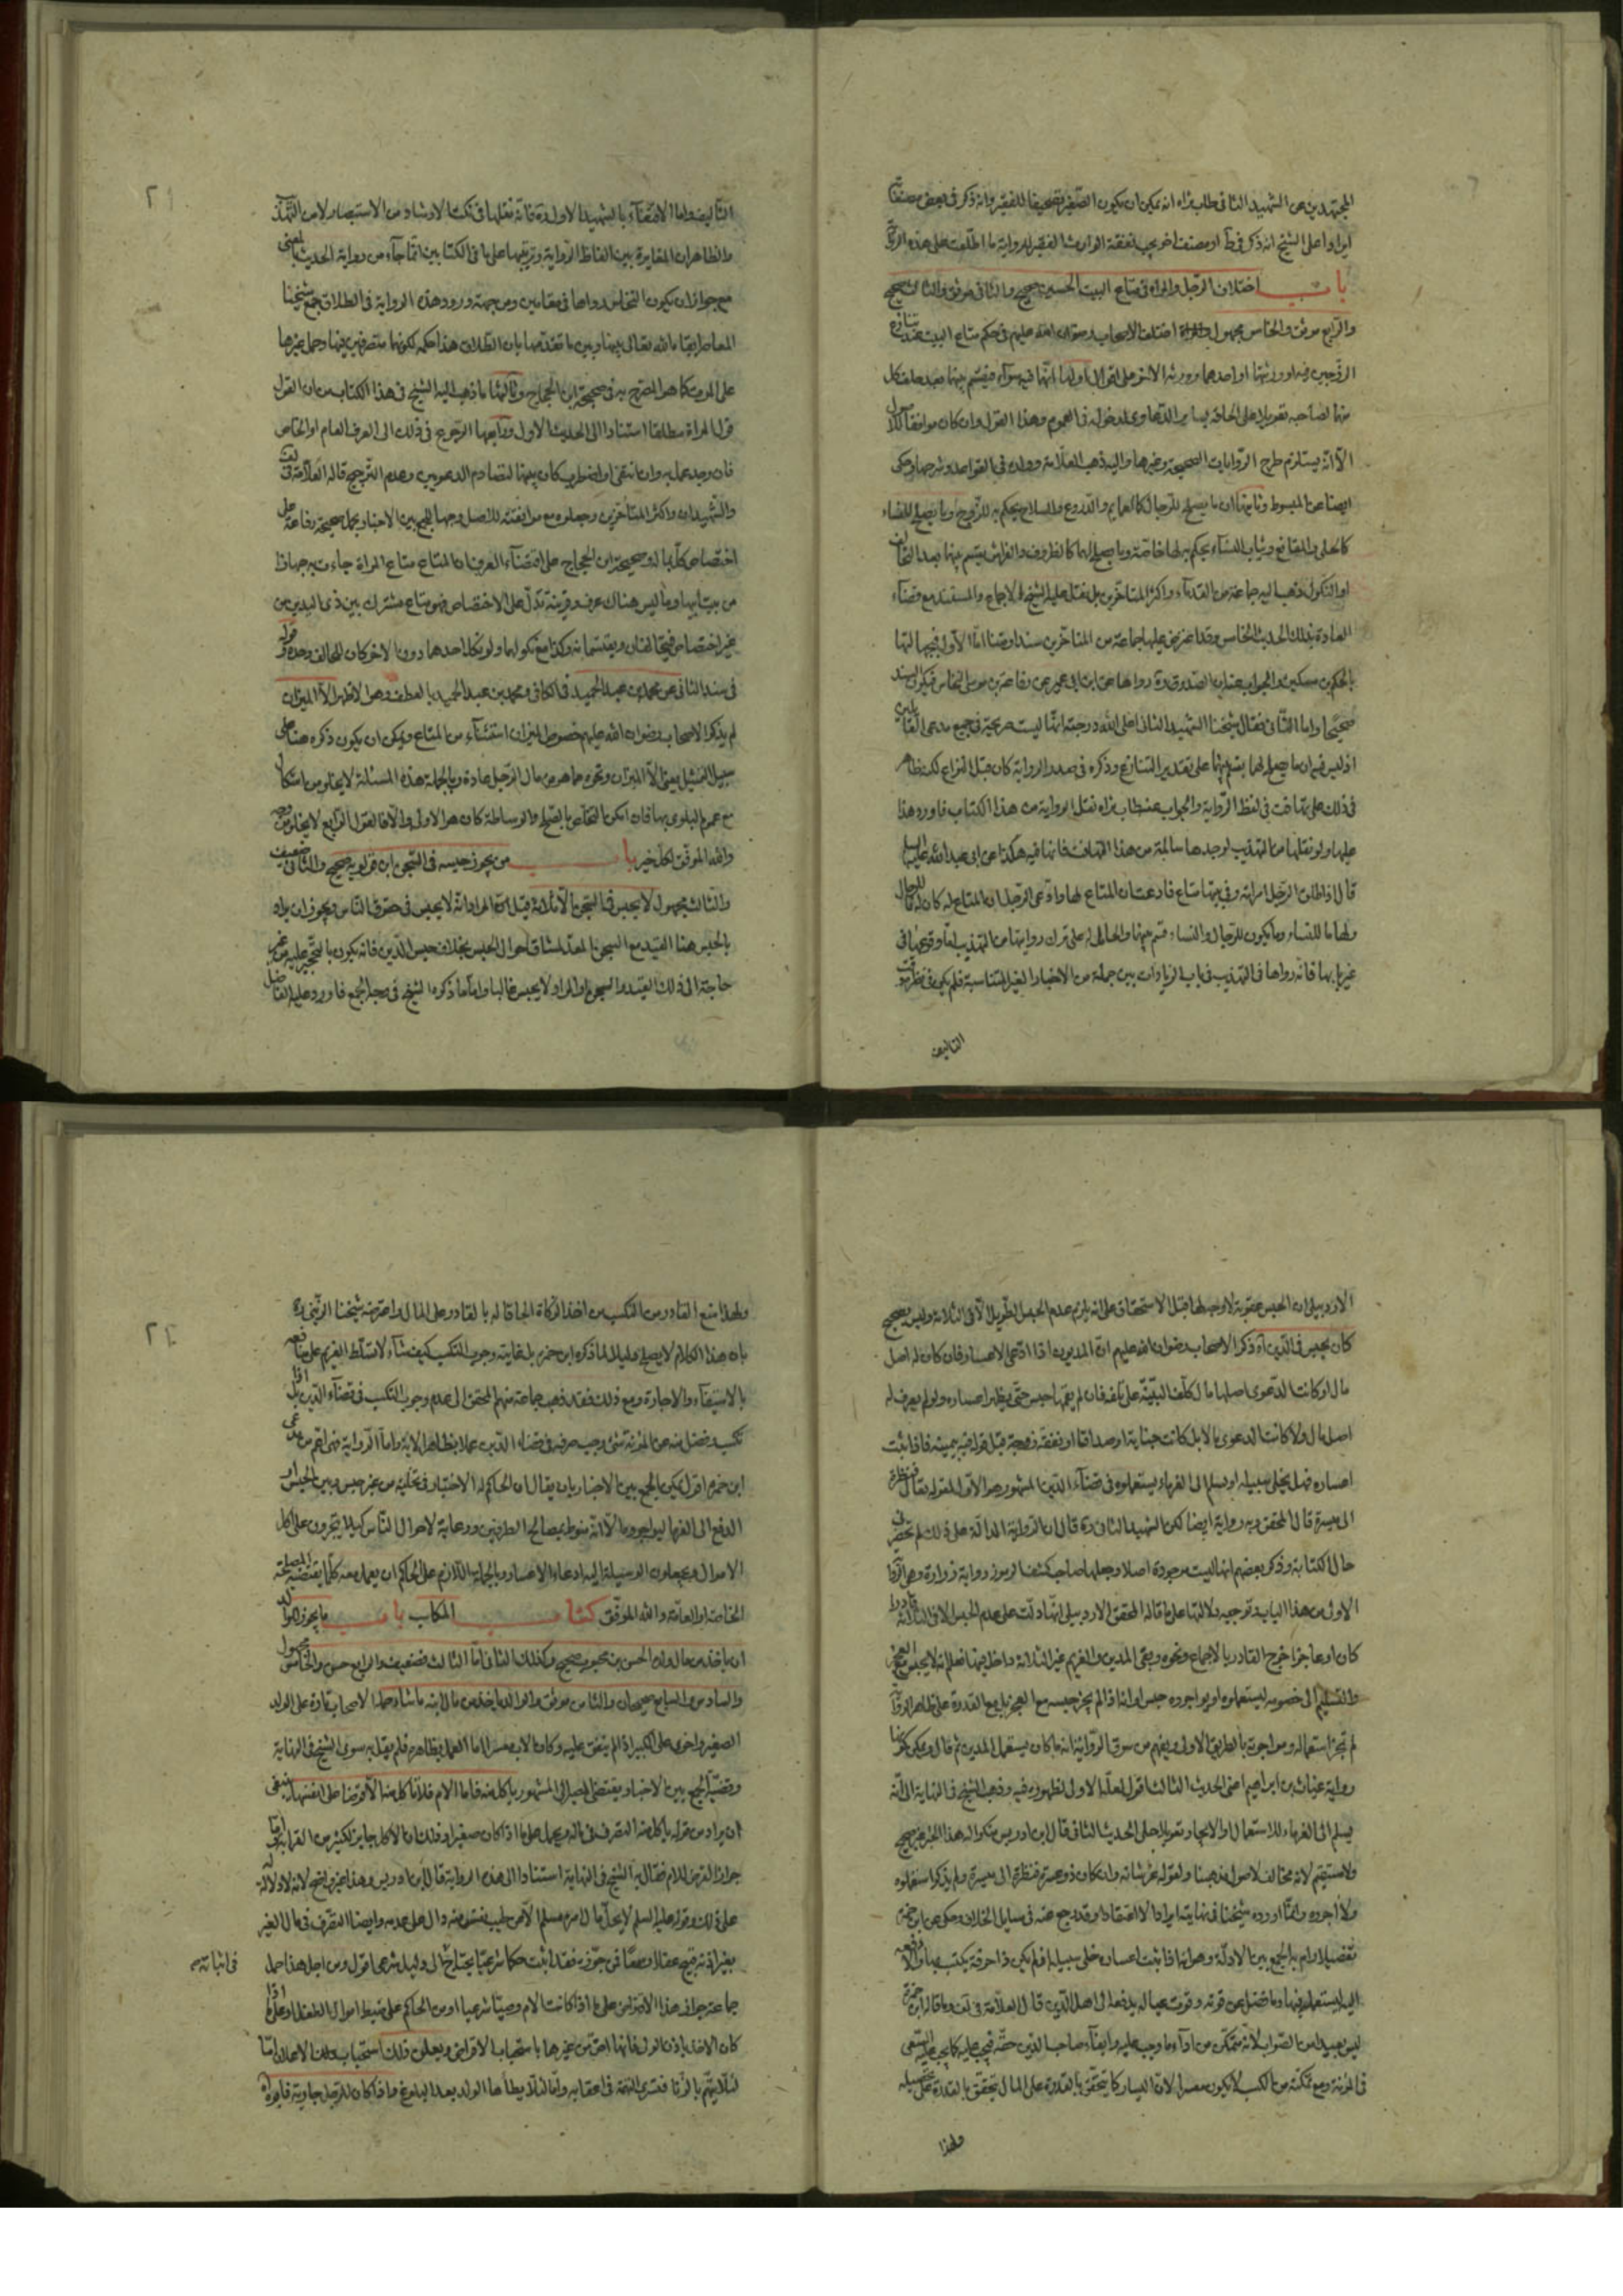 المجتهدين عن الشهيد الثاني طاب ثراه انه يمكن ان يكون الصغير تصحيفا للفقير وانه ذكر في بعض مصنفا
ايرادا على الشيخ انه ذكر في آخر يجب نفقة الوارث الفقير للرواية ما اطلعت على هذه
باب اختلاف الرجل والمراة في متاع البيت الحسين صحيح والثاني موثق والثالث صحيح
والرابع موثق والخامس مجهول اختلف الاصحاب رضوان الله عليهم في حكم متاع البيت عند تنازع
الزوجين فيه او ورثتهما او احدهما وورثة الاخر على اقوال اولها انهما فيه سواء فيقسم بينهما بعد حلف كل
منهما لصاحبه تعويلا على الحاقه بساير الدعاوى لدخوله في العموم وهذا القول وان كان موافقا للاصول
الا انه يستلزم طرح الروايات الصحيحة وغيرها واليه ذهب العلامة وولده في القواعد وشرحها وحكى
ايضا عن المبسوط وثانيها ان ما يصلح للرجال كالعمايم والدروع والسلاح يحكم به للزوج وما يصلح للنساء
كالحلى والمقانع وثياب النساء يحكم به لها خاصة وما يصلح لهما كالظروف والفراش يقسم بينهما بعد التحالف
او النكول ذهب اليه جماعة من القدماء واكثر المتاخرين بل نقل عليه الشيخ الاجماع والمستند مع قضاء
العادة بذلك الحديث الخامس وقد اعترض عليها جماعة من المتاخرين سندا ومتنا اما الاول فبجهالتها
بالحكم بن مسكين والجواب عنه ان الصدوق ره رواها عن ابن ابي عمير عن رفاعة بن موسى النخاس فيكون السند
صحيحا واما الثاني فقال شيخنا الشهيد الثاني اعلى الله درجته انها ليست صريحة في جميع مدعى القائلين
اذ ليس فيه ان ما يصلح لهما يقسم بينهما على تقدير التنازع وذكره في صدر الرواية كان قبل النزاع لكن ظاهر
في ذلك على تهافت في لفظ الرواية والجواب عنه طاب ثراه نقل الرواية من هذا الكتاب فاورد هذا
عليها ولو نقلها من التهذيب لوجدها سالمة من هذا التهافت فانها فيه هكذا عن ابي عبد الله عليه السلم
قال اذا طلق الرجل امراته وفي بيتها متاع فادعت ان المتاع لها وادعى الرجل ان المتاع له كان له ما للرجال
ولها ما للنساء وما يكون للرجال والنساء قسم بينهما والحامل له على ترك روايتها من التهذيب لعله وقوعها في
غير بابها فانه رواها في التهذيب في باب الزيادات بين جملة من الاخبار الغير المتناسبة فلم يكن في نظره وقت
التاليف
التاليف واما الاقتفاء بالشهيد الاول ره فانه نقلها في نكت الارشاد من الاستبصار لا من التهذيب
والظاهر ان المغايرة بين الفاظ الرواية وترتيبها على ما في الكتابين انما جاء من رواية الحديث بالمعنى
مع جواز ان يكون النخاس رواها في مقامين ومن جهة ورود هذه الرواية في الطلاق جمع شيخنا
المعاصر ابقاه الله تعالى بينها وبين ما تقدمها بان الطلاق هذا حكمه لكونهما متصرفين فيها وحمل غيرها
على الموت كما هو المصرح به في صحيحة ابن الحجاج وثالثها ما ذهب اليه الشيخ في هذا الكتاب من ان القول
قول المراة مطلقا استنادا الى الحديث الاول ورابعها الرجوع في ذلك الى العرف العام او الخاص
فان وجد عمل به وان انتفى او اضطرب كان بينهما لتصادم الدعويين وعدم الترجيح قاله العلامة في لف
والشهيدان واكثر المتاخرين وجعلوه مع موافقته للاصل وجها للجمع بين الاخبار بحمل صحيحة رفاعة على
اختصاص كل بما له وصحيحة ابن الحجاج على اقتضاء العرف ان المتاع متاع المراة جاءت به جهازا
من بيت ابيها وما ليس هناك عرف وقرينة تدل على الاختصاص فهو متاع مشترك بين ذي اليدين من
غير اختصاص فيتحالفان ويقتسمانه وكذا مع نكولهما ولو نكل احدهما دون الاخر كان للحالف وحده قوله
في سند الثاني عن محمد بن عبد الحميد في الكافي ومحمد بن عبد الحميد بالعطف وهو الاظهر الا الميزان
لم يذكر الاصحاب رضوان الله عليهم خصوص الميزان استثناء من المتاع ويمكن ان يكون ذكره هنا على
سبيل التمثيل يعني الا الميزان ونحوه مما هو من مال الرجل عادة وبالجملة هذه المسئلة لا يخلو من اشكال
مع عموم البلوى بها فان امكن التخلص بالصلح والوساطة كان هو الاولى والا فالقول الرابع لا يخلو من وجه
والله الموفق لكل خير باب من يجوز حبسه في السجن ابن قولويه صحيح والثاني ضعيف
والثالث مجهول لا يحبس في السجن الا ثلاثة قيل ان المراد انه لا يحبس في حقوق الناس ويجوز ان يراد
بالحبس هنا القيد مع السجن المعد لمشاق احوال الحبس بخلاف حبس الدين فانه يكون بالتحجير عليه من غير
حاجة الى ذلك القيد والسجن او المراد لا يحبس غالبا واما ما ذكره الشيخ في وجه الجمع فاورد عليه الفاضل
الاردبيلي ان الحبس عقوبة لا وجه لها قبل الاستحقاق على انه يلزم عدم الحبس الطويل الا في الثلاثة وليس بصحيح
كان يحبس في الدين آه ذكر الاصحاب رضوان الله عليهم ان المديون اذا ادعى الاعسار فان كان له اصل
مال او كانت الدعوى اصلها مال كلف البينة على تلفه فان لم يقمها حبس حتى يظهر اعساره ولو لم يعرف له
اصل مال ولا كانت الدعوى بالابل كانت جناية او صداقا او نفقة زوجة قبل قوله فيه بيمينه فاذا ثبت
اعساره فهل يخلى سبيله او يسلم الى الغرماء ويستعملوه في قضاء الدين المشهور هو الاول لقوله تعالى فنظرة
الى ميسرة قال المحقق وبه رواية ايضا لكن الشهيد الثاني ره قال ان الرواية الدالة على ذلك لم تحضرني
حال الكتابة وذكر بعضهم انها ليست موجودة اصلا وجعلها صاحب كشف الرموز رواية زرارة وهي
الاولى من هذا الباب وتوجيه دلالتها على ما قاله المحقق الاردبيلي انها دلت على عدم الحبس الا في الثلاثة قادرا
كان او عاجزا خرج القادر بالاجماع ونحوه وبقي المدين والغريم غير الثلاثة داخل فيها فعلم انه لا يحبس مع العجز
والتسليم الى خصومه ليستعملوه او يواجروه حبس او انه اذا لم يجز حبسه مع العجز بل مع القدرة على ظاهر
لم تجز استعماله ومواجرته بالطريق الاولى ويفهم من سوق الرواية انه ما كان يستعمل المدين ثم قال ويمكن كونها
رواية غياث بن ابراهيم اعني الحديث الثالث اقول لعله الاول لظهوره فيه وذهب الشيخ في النهاية الى انه
يسلم الى الغرماء للاستعمال والايجار تعويلا على الحديث الثاني قال ابن ادريس منكرا له هذا الخبر غير صحيح
ولا مستقيم لانه مخالف لاصول مذهبنا ولقوله عز شانه وان كان ذو عسرة فنظرة الى ميسرة ولم يذكر استعملوه
ولا اجروه وانما اورده شيخنا في نهايته ايرادا لا اعتقادا وقد رجع عنه في مسايل الخلاف وحكى عن ابن حمزة
تفصيلا رام به الجمع بين الادلة وهو انه اذا ثبت اعساره خلى سبيله ان لم يكن ذا حرفة يكتسب بها والا دفعه
اليه ليستعمله فيها وما فضل عن قوته وقوت عياله يدفعه الى اهل الدين قال العلامة في لف وما قاله ابن حمزة
ليس ببعيد من الصواب لانه متمكن من اداء ما وجب عليه وايفاء صاحب الدين حقه فيجب عليه كما يجب عليه السعي
في المؤنة ومع تمكنه من الكسب لا يكون معسرا لان اليسار كما يتحقق بالقدرة على المال يتحقق بالقدرة على تحصيله
ولهذا
ولهذا منع القادر من التكسب من اخذ الزكاة الحاقا له بالقادر على المال واعترضه شيخنا الزيني ره
بان هذا الكلام لا يصلح دليلا لما ذكره ابن حمزة بل غايته وجوب التكسب كيف شاء لا تسلط الغريم على منافعه
بالاستيفاء والاجارة ومع ذلك فقد ذهب جماعة منهم المحقق الى عدم وجوب التكسب في قضاء الدين بل اذا
تكسب وفضل منه عن المؤنة شئ وجب صرفه في قضاء الدين عملا بظاهر الاية واما الرواية فهي اعم من مدعى
ابن حمزة اقول يمكن الجمع بين الاخبار بان يقال ان الحاكم له الاختيار في تخليته من غير حبس وبين الحبس او
الدفع الى الغرماء ليواجروه الا انه منوط بمصالح الطرفين ورعاية لاحوال الناس كيلا يتجرون على اكل
الاموال ويجعلون الوسيلة اليه ادعاء الاعسار وبالجملة اللازم على الحاكم ان يعمل معه كلما يقتضيه المصلحة
الخاصة او العامة والله الموفق كتاب المكاسب باب ما يجوز للوالد
ان ياخذ من مال ولده الحسن بن محبوب صحيح وكذلك الثاني اما الثالث فضعيف والرابع حسن والخامس مجهول
والسادس والسابع صحيحان والثامن موثق والوالد ياخذ من مال ابنه ما شاء حمله الاصحاب تارة على الولد
الصغير واخرى على الكبير اذا لم ينفق عليه وكان الاب معسرا اما العمل بظاهره فلم يقل به سوى الشيخ في النهاية
وقضية الجمع بين الاخبار يقتضي المصير الى المشهور ياكل منه فاما الام فلا تاكل منه الا قرضا على نفسها ينبغي
ان يراد من قوله ياكل منه التصرف في ماله ويحمل على ما اذا كان صغيرا وذلك ان الاكل جايز لكثير من القرابة اما
جواز القرض للام فقال به الشيخ في النهاية استنادا الى هذه الرواية قال ابن ادريس وهذا غير واضح لانه لا دلالة له
على ذلك وقوله عليه السلم لا يحل مال امرء مسلم الا عن طيب نفس منه دال على عدمه وايضا التصرف في مال الغير
بغير اذنه قبيح عقلا وسمعا فمن جوزه فقد اثبت حكما شرعيا يحتاج الى دليل شرعي اقول ومن اجل هذا حمل
في اثباته
جماعة جواز هذا الاقتراض على ما اذا كانت الام وصيا شرعيا او من الحاكم على ضبط اموال الطفل او على ما اذا
كان الاخذ باذن الولي فانها احق من غيرها باستحباب الاقراض ويعلن ذلك استحباب ذلك الاعلان اما
لئلا يتهم بالزنا فتسرى التهمة في اعقابه واما لئلا يطأها الولد بعد البلوغ ما اذا كان للرجل جارية فايوه